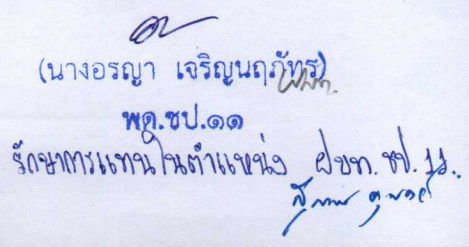 (นางอรญา เจริญนฤภัทร)
พด.ชป.๑๑
รักษาการแทนในตำแหน่ง ฝบท. ชป. 11.